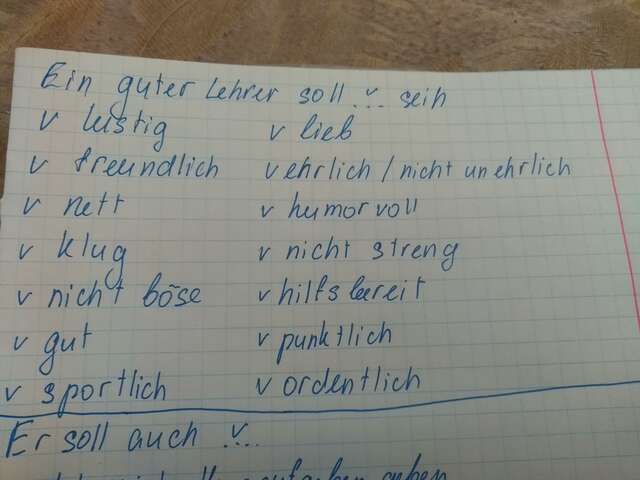 Ein guter Lehrer soll ... sein
v lustig v lieb
v freundlich v ehrlich / nicht unehrlich
v nett v humorvoll
v klug v nicht streng
v nicht böse v hilfsbereit
v gut v punktlich
v sportlich v ordentlich
Er soll auch v...
geben